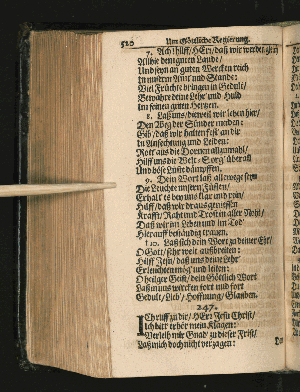 520 Um Göttliche Regierung.
7. Ach hilff / HErr / daß wir werden gleich
Allhie dem guten Lande /
Und seyn an guten Wercken reich
In unserm Amt und Stande:
Viel Früchte bringen in Gedult /
Bewahre deine Lehr und Huld
In unserm guten Hertzen.
8. Laß uns / dieweil wir leben hier /
Den Weg der Sünder meiden:
Gib / daß wir halten fest an dir
In Anfechtung und Leiden:
Rott aus die Dornen allzumahl /
Hilff uns die Welt-Sorg' überall
Und böse Lüste dämpffen.
9. Dein Wort laß allewege seyn
Die Leuchte unsern Füssen /
Erhalt es bey uns klar und rein /
Hilff / daß wir draus geniessen
Krafft / Raht und Trost in aller Noht /
Daß wir im Leben und im Tod
Herauff beständig trauen.
10. Laß sich dein Wort zu deiner Ehr /
O Gott / sehr weit ausbreiten:
Hilff Jesu / daß uns deine Lehr
Erleuchten mög' und leiten:
O heilger Geist / dein Göttlich Wort
Laß in uns wircken fort und fort
Gedult / Lieb' / Hoffnung / Glauben.
247.
Ich ruff zu dir / HErr Jesu Christ /
Ich bitt' erhör mein Klagen:
Verleih mir Gnad' zu dieser Frist /
Laß mich doch nicht verzagen: